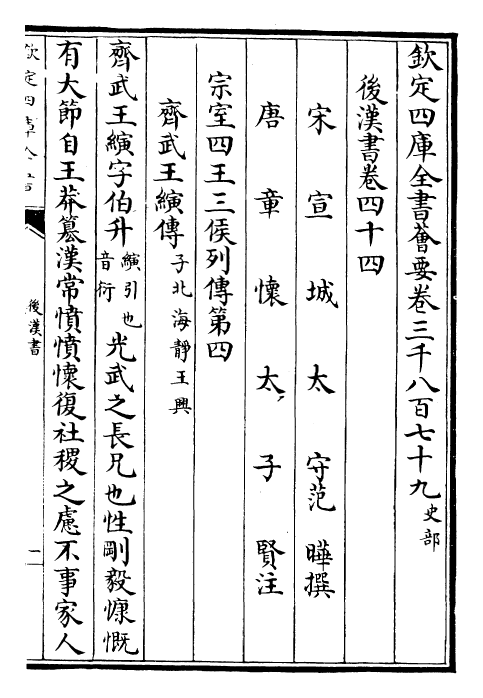 欽定四庫全書薈要卷三千八百七十九 史部
後漢書卷四十四
宋宣城太守范曄撰
唐章懷太子賢注
宗室四王三侯列傳第四
齊武王縯傳 子北海靜王興
齊武王縯字伯升 縯引也音衍 光武之長兄也性剛毅慷慨
有大節自王莽簒漢常憤憤懷復社稷之慮不事家人
後漢書
一